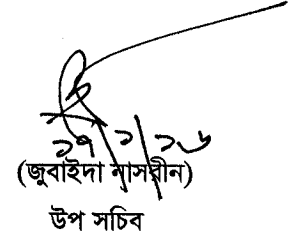 ১৭/১/১৬
(জুবাইদা নাসরীন)
উপ সচিব